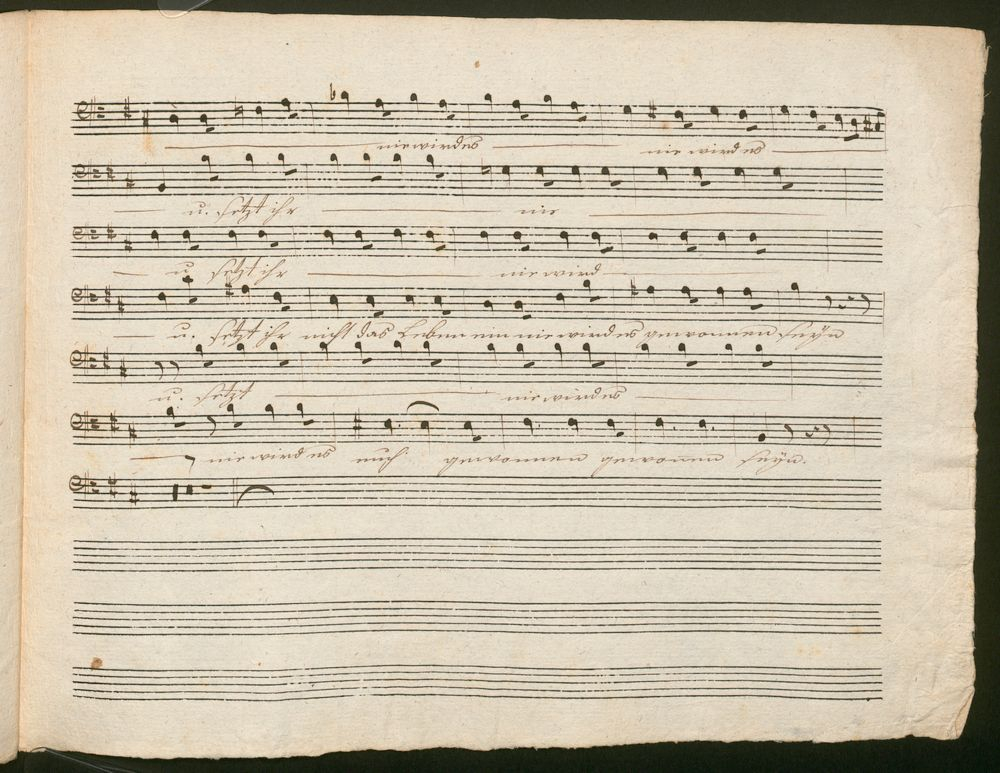 nie wird es nie wird es
u. setzt ihr nie
u. setzt ihr nie wird
u. setzt ihr nicht das Leben ein nie wird es gewonnen seyn
u. setzt nie wird es
nie wird es euch gewonnen gewonnen seyn.